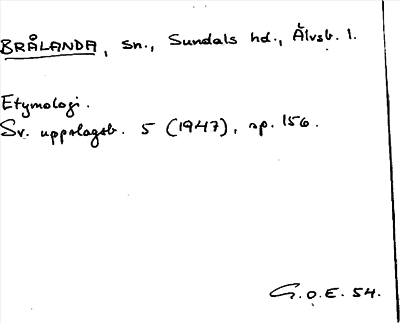 BRÅLANDA, sn., Sundals hd., Älvsb. l.
Etymologi.
Sv. uppslagsb. 5 (1947), sp. 156.
G.O.E. 54.